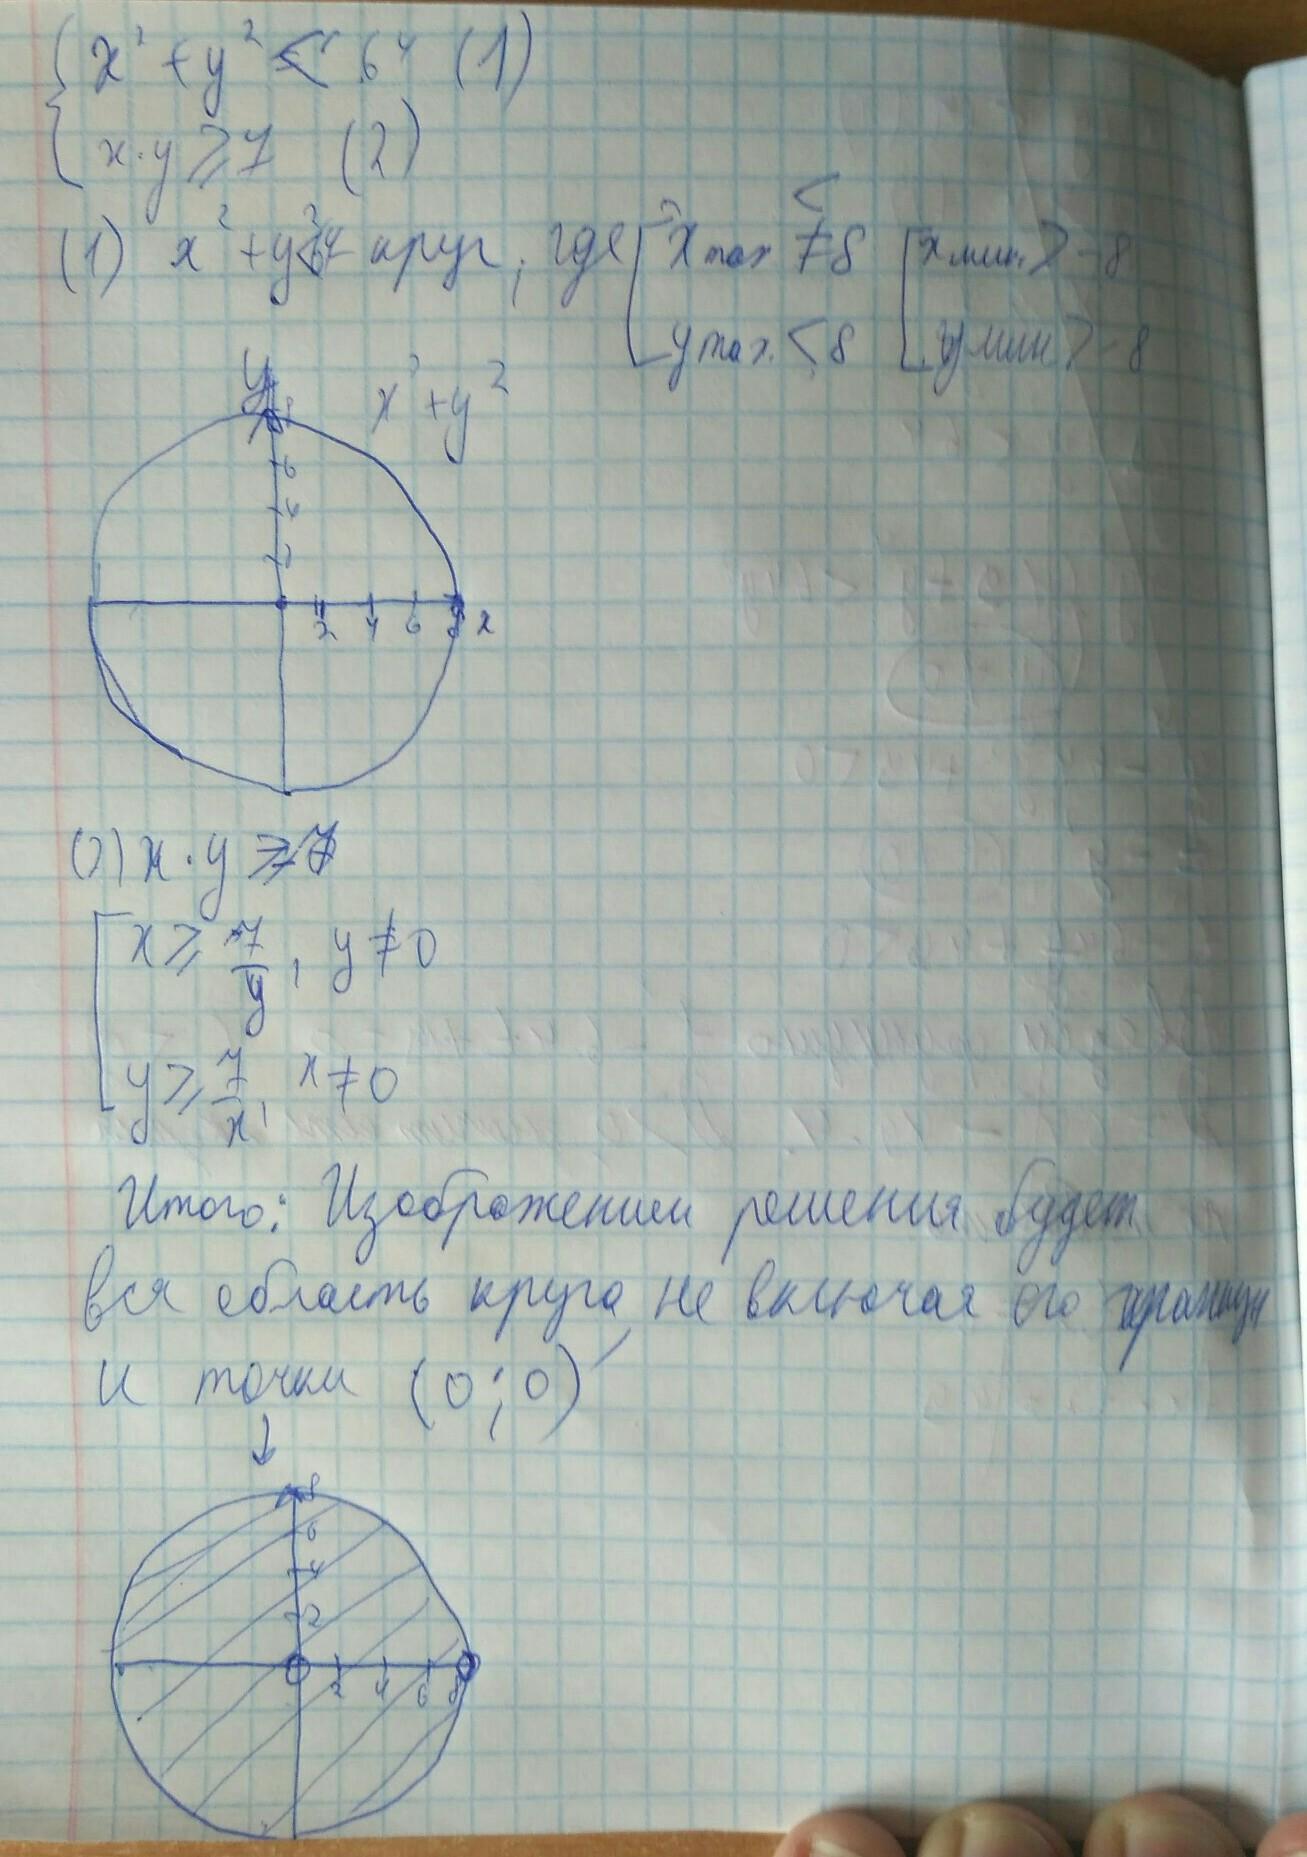 { x² + y² < 64 (1)
x·y ⩾ 7 (2)
(1) x² + y² < 64 - круг, где [ x max < 8 [ x мин. > -8
y max. < 8 y мин > -8
y x² + y²
8
6
4
2
2 4 6 8 x
(2) x·y ⩾ 7
[ x ⩾ 7/y, y ≠ 0
y ⩾ 7/x, x ≠ 0
Итого: Изображением решения будет
вся область круга, не включая его границу
и точки (0;0)
↓
8
6
4
2
2 4 6 8